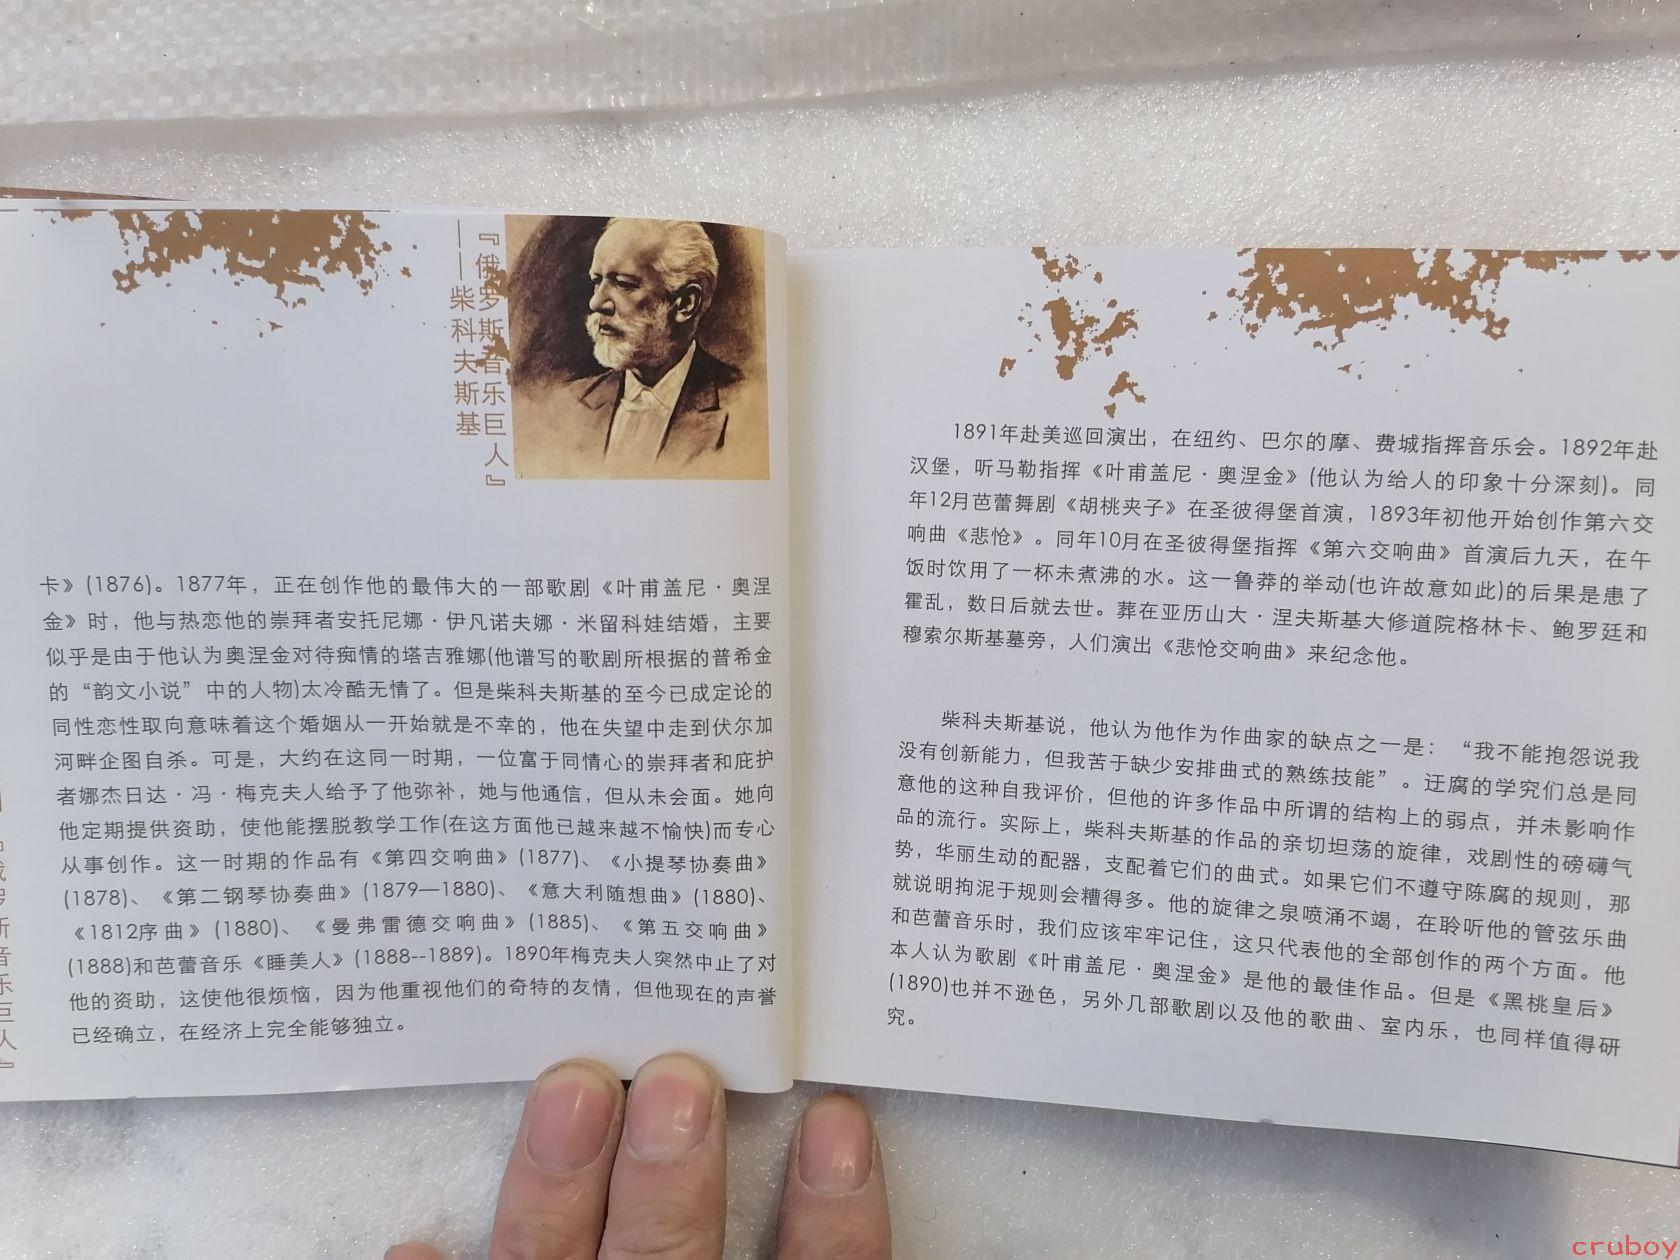 『俄罗斯音乐巨人』
——柴科夫斯基
卡》(1876)。1877年，正在创作他的最伟大的一部歌剧《叶甫盖尼·奥涅
金》时，他与热恋他的崇拜者安托尼娜·伊凡诺夫娜·米留科娃结婚，主要
似乎是由于他认为奥涅金对待痴情的塔吉雅娜(他谱写的歌剧所根据的普希金
的“韵文小说”中的人物)太冷酷无情了。但是柴科夫斯基的至今已成定论的
同性恋性取向意味着这个婚姻从一开始就是不幸的，他在失望中走到伏尔加
河畔企图自杀。可是，大约在这同一时期，一位富于同情心的崇拜者和庇护
者娜杰日达·冯·梅克夫人给予了他弥补，她与他通信，但从未会面。她向
他定期提供资助，使他能摆脱教学工作(在这方面他已越来越不愉快)而专心
从事创作。这一时期的作品有《第四交响曲》(1877)、《小提琴协奏曲》
(1878)、《第二钢琴协奏曲》(1879—1880)、《意大利随想曲》(1880)、
《1812序曲》(1880)、《曼弗雷德交响曲》(1885)、《第五交响曲》
(1888)和芭蕾音乐《睡美人》(1888--1889)。1890年梅克夫人突然中止了对
他的资助，这使他很烦恼，因为他重视他们的奇特的友情，但他现在的声誉
已经确立，在经济上完全能够独立。
1891年赴美巡回演出，在纽约、巴尔的摩、费城指挥音乐会。1892年赴
汉堡，听马勒指挥《叶甫盖尼·奥涅金》(他认为给人的印象十分深刻)。同
年12月芭蕾舞剧《胡桃夹子》在圣彼得堡首演，1893年初他开始创作第六交
响曲《悲怆》。同年10月在圣彼得堡指挥《第六交响曲》首演后九天，在午
饭时饮用了一杯未煮沸的水。这一鲁莽的举动(也许故意如此)的后果是患了
霍乱，数日后就去世。葬在亚历山大·涅夫斯基大修道院格林卡、鲍罗廷和
穆索尔斯基墓旁，人们演出《悲怆交响曲》来纪念他。
柴科夫斯基说，他认为他作为作曲家的缺点之一是：“我不能抱怨说我
没有创新能力，但我苦于缺少安排曲式的熟练技能”。迂腐的学究们总是同
意他的这种自我评价，但他的许多作品中所谓的结构上的弱点，并未影响作
品的流行。实际上，柴科夫斯基的作品的亲切坦荡的旋律，戏剧性的磅礴气
势，华丽生动的配器，支配着它们的曲式。如果它们不遵守陈腐的规则，那
就说明拘泥于规则会糟得多。他的旋律之泉喷涌不竭，在聆听他的管弦乐曲
和芭蕾音乐时，我们应该牢牢记住，这只代表他的全部创作的两个方面。他
本人认为歌剧《叶甫盖尼·奥涅金》是他的最佳作品。但是《黑桃皇后》
(1890)也并不逊色，另外几部歌剧以及他的歌曲、室内乐，也同样值得研
究。
cruboy